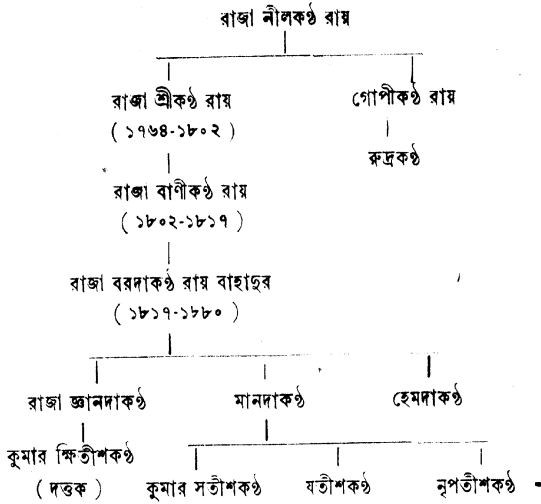 রাজা নীলকণ্ঠ রায়
রাজা শ্রীকণ্ঠ রায় গোপীকণ্ঠ রায়
( ১৭৬৪-১৮০২ )
রুদ্রকণ্ঠ
রাজা বাণীকণ্ঠ রায়
( ১৮০২-১৮১৭ )
রাজা বরদাকণ্ঠ রায় বাহাদুর
( ১৮১৭-১৮৮০ )
রাজা জ্ঞানদাকণ্ঠ মানদাকণ্ঠ হেমদাকণ্ঠ
কুমার ক্ষিতীশকণ্ঠ
( দত্তক ) কুমার সতীশকণ্ঠ যতীশকণ্ঠ নৃপতীশকণ্ঠ